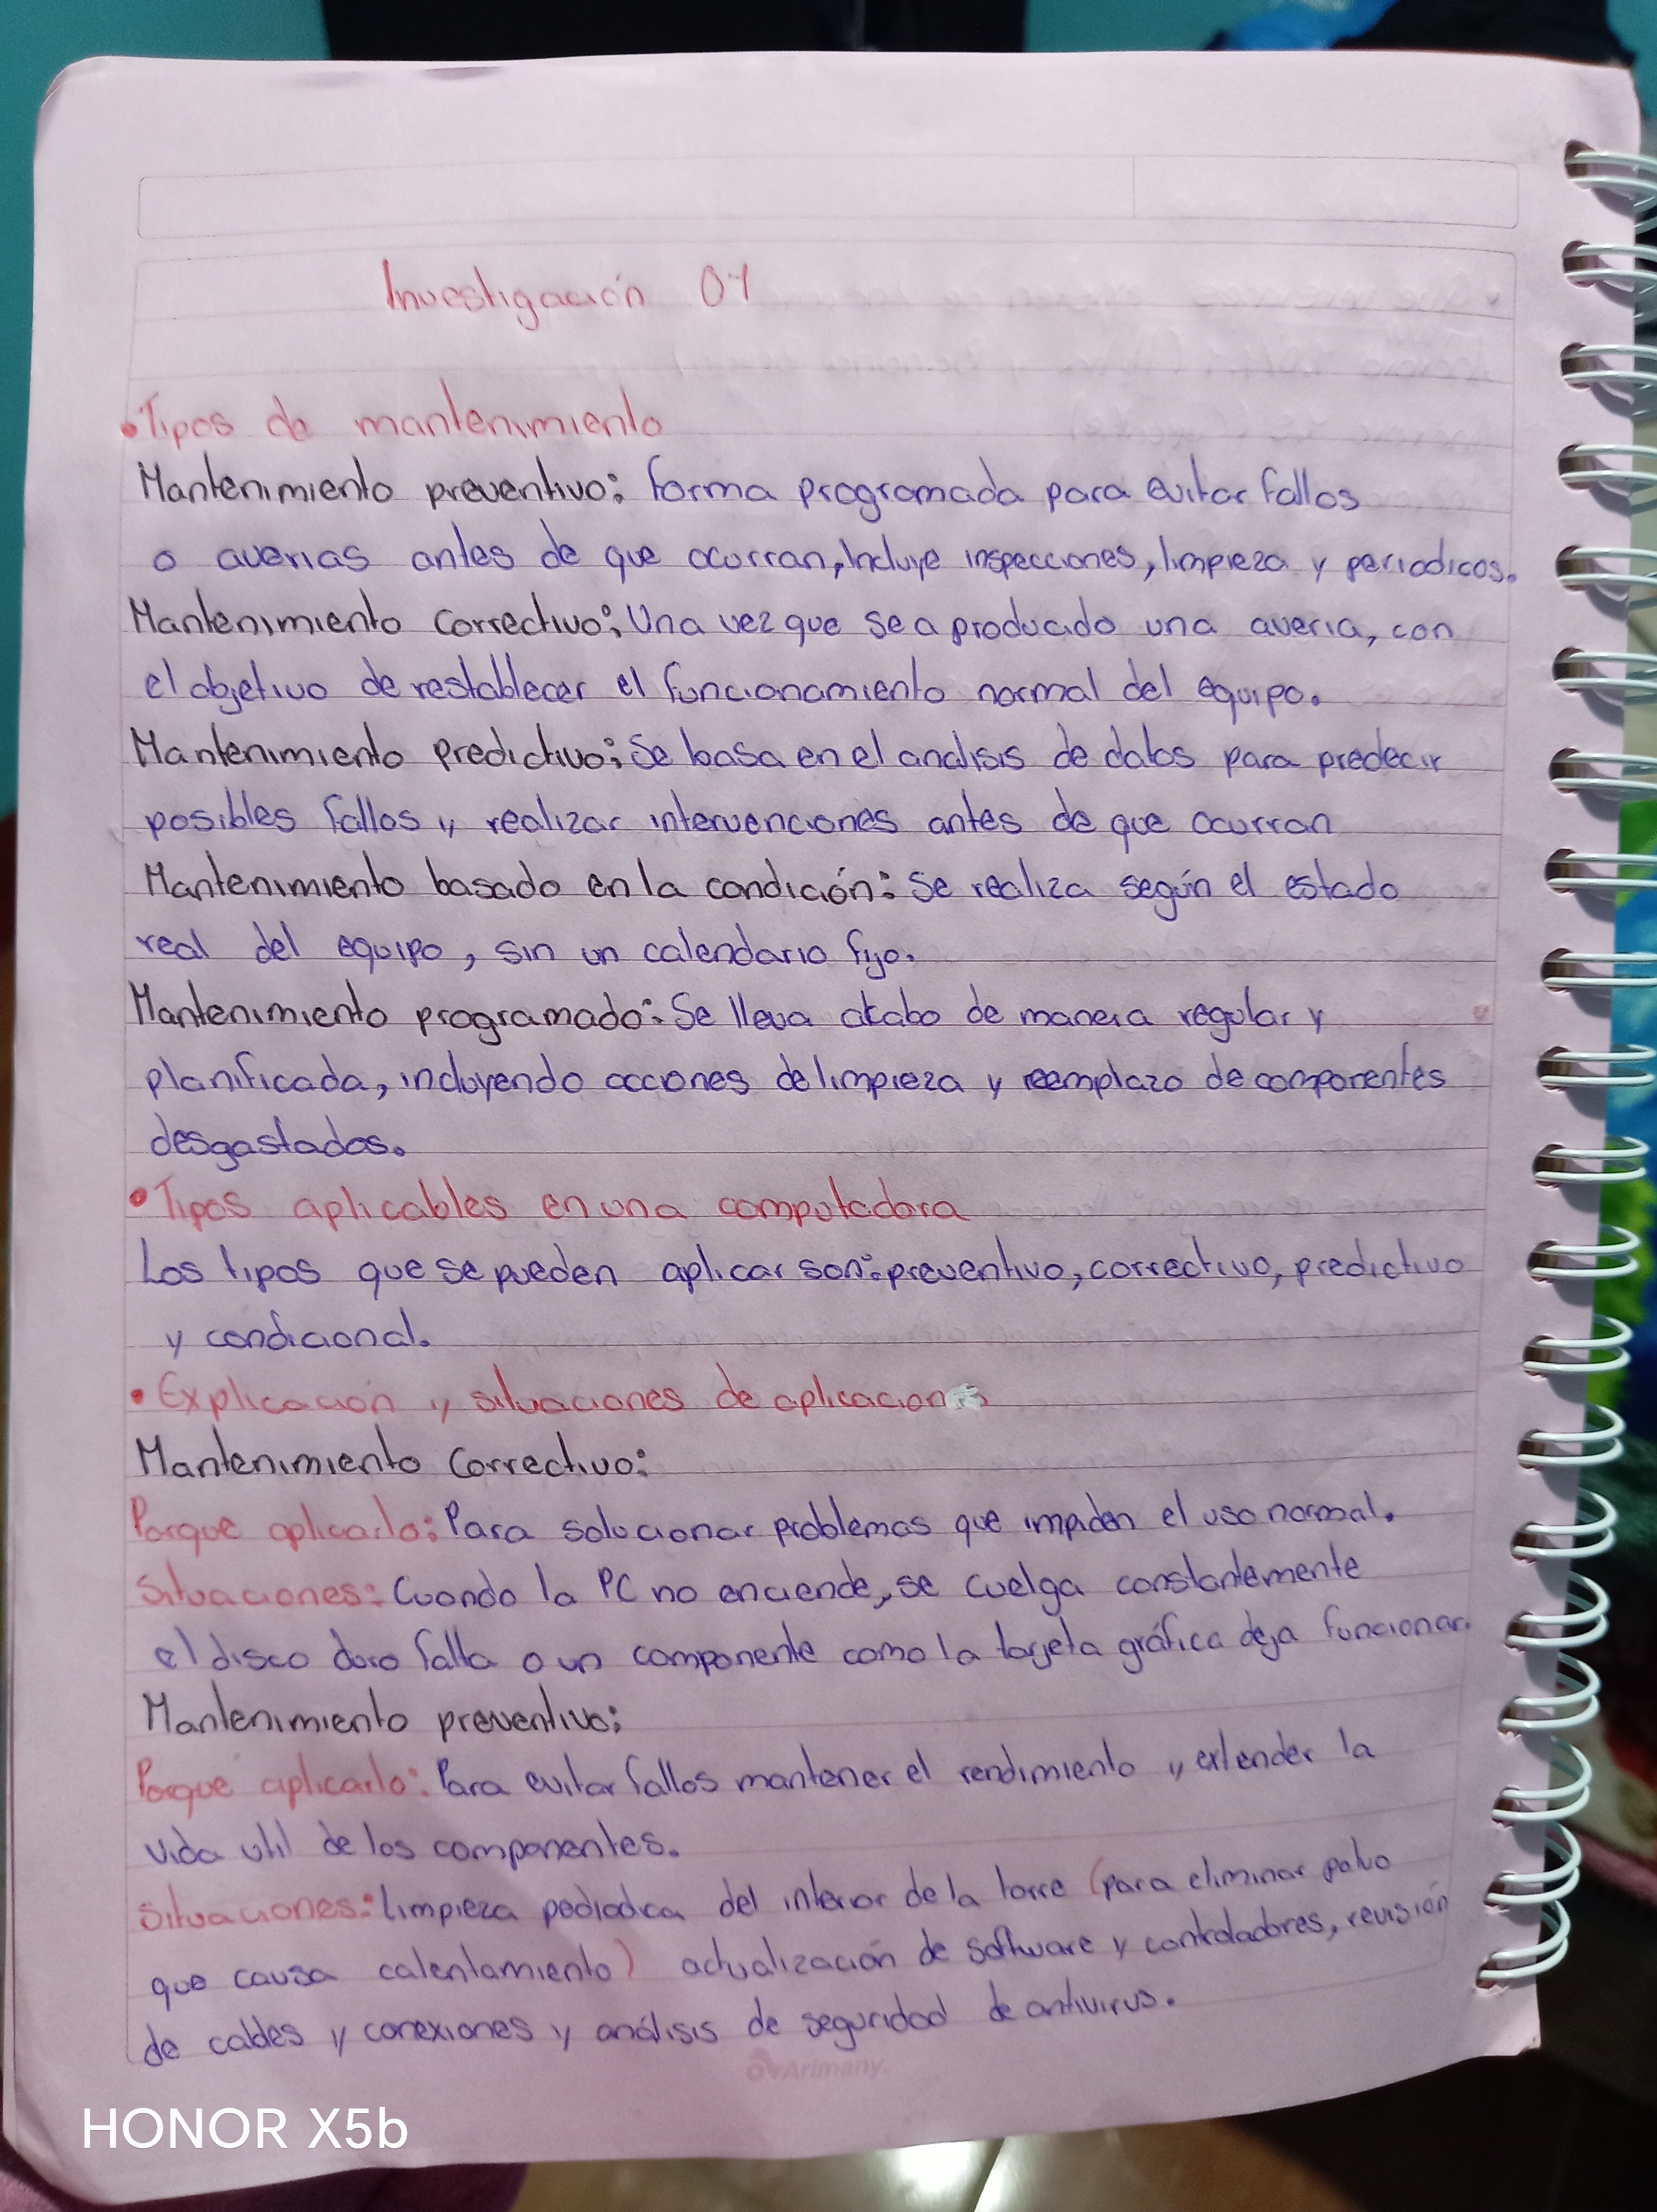 Investigación 01
• Tipos de mantenimiento
Mantenimiento preventivo: forma programada para evitar fallos
o averias antes de que ocurran, Incluye inspecciones, limpieza y periodicos.
Mantenimiento correctivo: Una vez que se a producido una averia, con
el objetivo de restablecer el funcionamiento normal del equipo.
Mantenimiento predictivo: Se basa en el analisis de datos para predecir
posibles fallos y realizar intervenciones antes de que ocurran
Mantenimiento basado en la condición: Se realiza según el estado
real del equipo, sin un calendario fijo.
Mantenimiento programado: Se lleva acabo de manera regular y
planificada, incluyendo acciones de limpieza y reemplazo de componentes
desgastados.
• Tipos aplicables en una computadora
Los tipos que se pueden aplicar son: preventivo, correctivo, predictivo
y condicional.
• Explicación y situaciones de aplicacion
Mantenimiento Correctivo:
Porque aplicarlo: Para solucionar problemas que impiden el uso normal.
Situaciones: Cuando la PC no enciende, se cuelga constantemente
el disco duro falla o un componente como la tarjeta gráfica deja funcionar.
Mantenimiento preventivo:
Porque aplicarlo: Para evitar fallos mantener el rendimiento y extender la
vida util de los componentes.
Situaciones: limpieza pediodica del interior de la torre (para eliminar polvo
que causa calentamiento) actualización de software y controladores, revisión
de cables y conexiones y análisis de seguridad de antivirus.
Arimany.
HONOR X5b